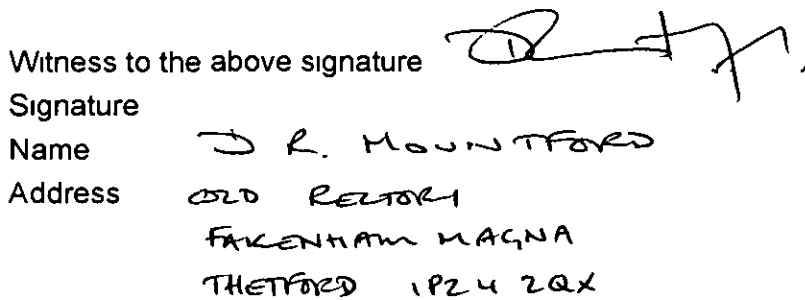 Witness to the above signature
Signature
Name D R. MOUNTFORD
Address OLD RECTORY
FAKENHAM MAGNA
THETFORD IP24 2QX